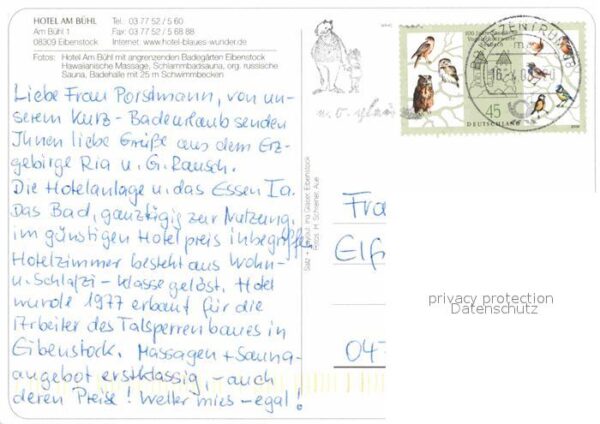 HOTEL AM BÜHL
Am Bühl 1
08309 Eibenstock
Tel.: 03 77 52 / 5 60
Fax: 03 77 52 / 5 68 88
Internet: www.hotel-blaues-wunder.de
Fotos: Hotel Am Bühl mit angrenzenden Badegärten Eibenstock
Hawaiianische Massage, Schlammbadsauna, org. russische
Sauna, Badehalle mit 25 m Schwimmbecken
Liebe Frau Porstmann, von un-
serem Kurz-Badeurlaub senden
Ihnen liebe Grüße aus dem Erz-
gebirge Ria u. G. Rausch.
Die Hotelanlage u. das Essen Ia.
Das Bad, ganztägig zur Nutzung,
im günstigen Hotelpreis inbegriffen
Hotelzimmer besteht aus Wohn-
u. Schlafzi-Klasse gelöst. Hotel
wurde 1977 erbaut für die
Arbeiter des Talsperrenbaues in
Eibenstock. Massagen + Sauna-
angebot erstklassig, - auch
deren Preise! Wetter mies - egal!
45
DEUTSCHLAND
Fra
Elf
04-
privacy protection
Datenschutz